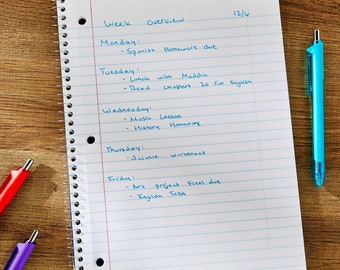 Week Overview 12/6
Monday:
- Spanish Homework due
Tuesday:
- Lunch with Maddie
- Read chapters 20 for English
Wednesday:
- Music Lesson
- History Homework
Thursday:
- Science worksheet
Friday:
- Art project final due
- English Test